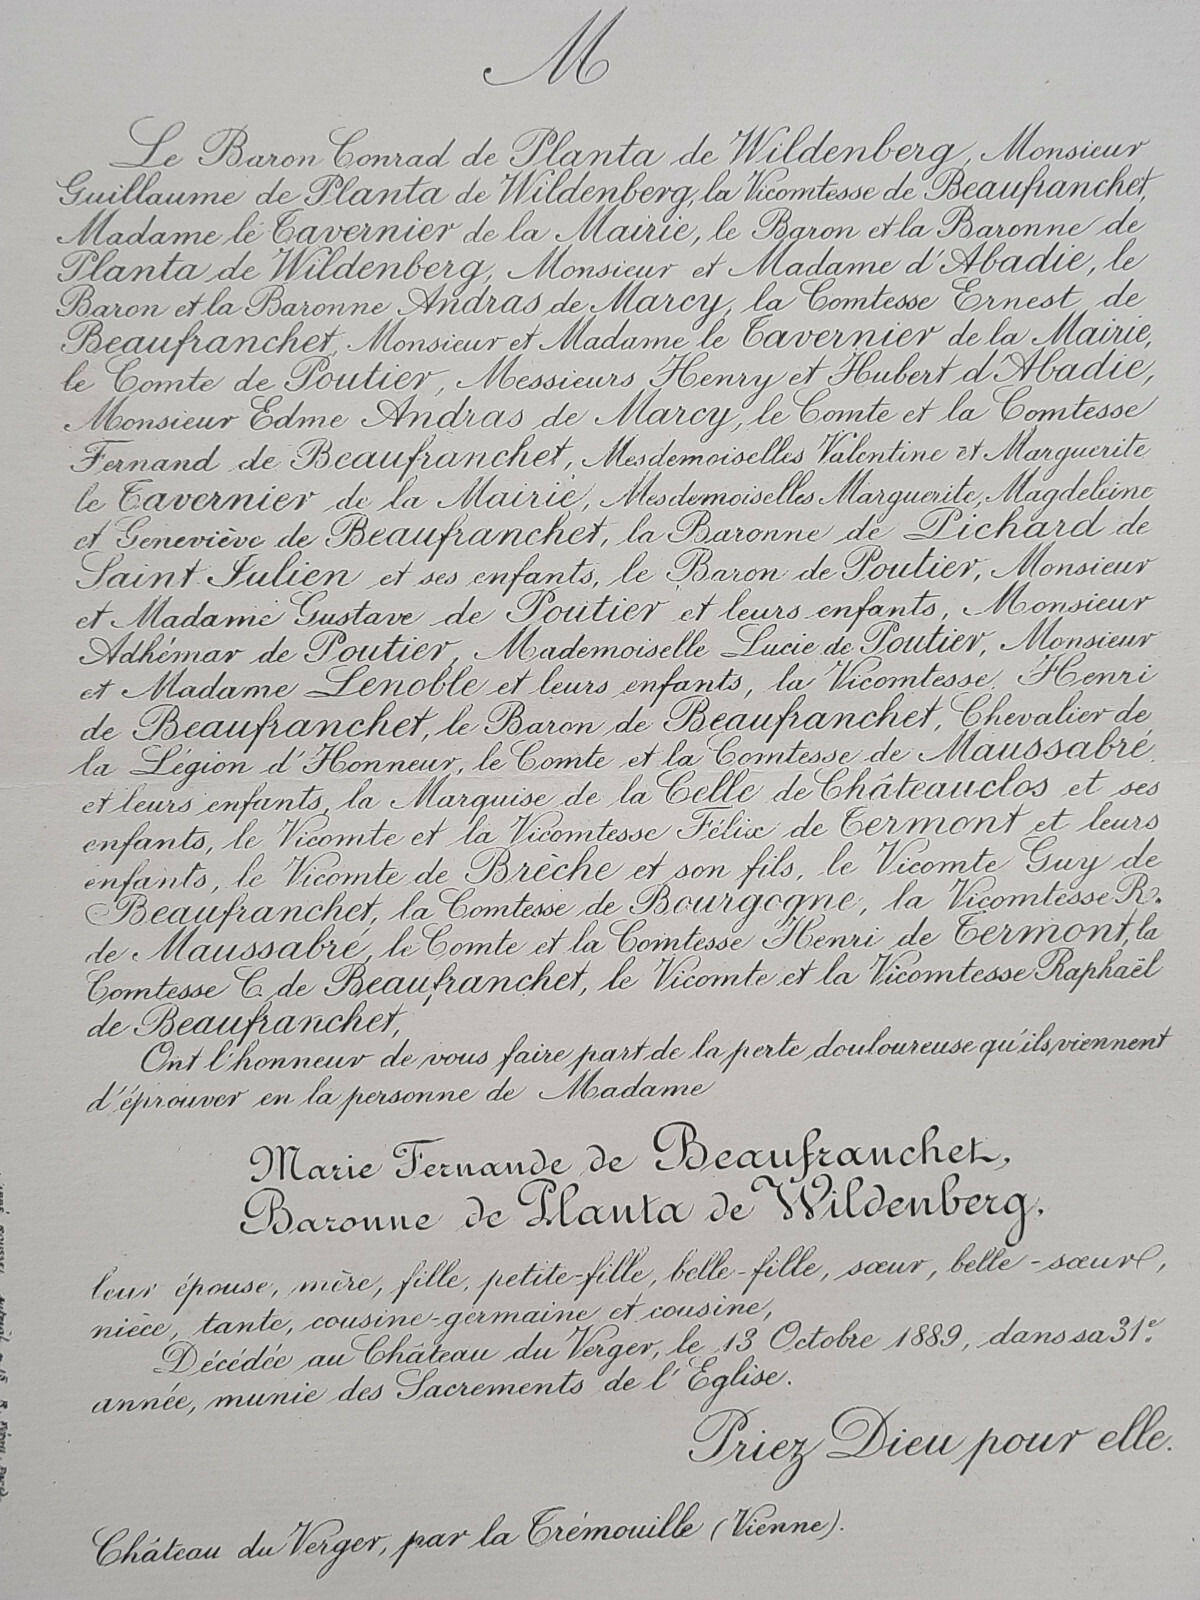 M
Le Baron Conrad de Planta de Wildenberg, Monsieur
Guillaume de Planta de Wildenberg, la Vicomtesse de Beaufranchet,
Madame le Tavernier de la Mairie, le Baron et la Baronne de
Planta de Wildenberg, Monsieur et Madame d'Abadie, le
Baron et la Baronne Andras de Marcy, la Comtesse Ernest de
Beaufranchet, Monsieur et Madame le Tavernier de la Mairie,
le Comte de Poutier, Messieurs Henry et Hubert d'Abadie,
Monsieur Edme Andras de Marcy, le Comte et la Comtesse
Fernand de Beaufranchet, Mesdemoiselles Valentine et Marguerite
le Tavernier de la Mairie, Mesdemoiselles Marguerite, Magdeleine
et Geneviève de Beaufranchet, la Baronne de Pichard de
Saint Julien et ses enfants, le Baron de Poutier, Monsieur
et Madame Gustave de Poutier et leurs enfants, Monsieur
Adhémar de Poutier, Mademoiselle Lucie de Poutier, Monsieur
et Madame Lenoble et leurs enfants, la Vicomtesse Henri
de Beaufranchet, le Baron de Beaufranchet, Chevalier de
la Légion d'Honneur, le Comte et la Comtesse de Maussabré
et leurs enfants, la Marquise de la Celle de Châteauclos et ses
enfants, le Vicomte et la Vicomtesse Félix de Termont et leurs
enfants, le Vicomte de Brèche et son fils, le Vicomte Guy de
Beaufranchet, la Comtesse de Bourgogne, la Vicomtesse R.
de Maussabré, le Comte et la Comtesse Henri de Termont, la
Comtesse C. de Beaufranchet, le Vicomte et la Vicomtesse Raphaël
de Beaufranchet,
Ont l'honneur de vous faire part de la perte douloureuse qu'ils viennent
d'éprouver en la personne de Madame
Marie Fernande de Beaufranchet,
Baronne de Planta de Wildenberg,
leur épouse, mère, fille, petite-fille, belle-fille, sœur, belle-sœur,
nièce, tante, cousine-germaine et cousine,
Décédée au Château du Verger, le 13 Octobre 1889, dans sa 31e
année, munie des Sacrements de l'Eglise.
Priez Dieu pour elle.
Château du Verger, par la Trémouille (Vienne).